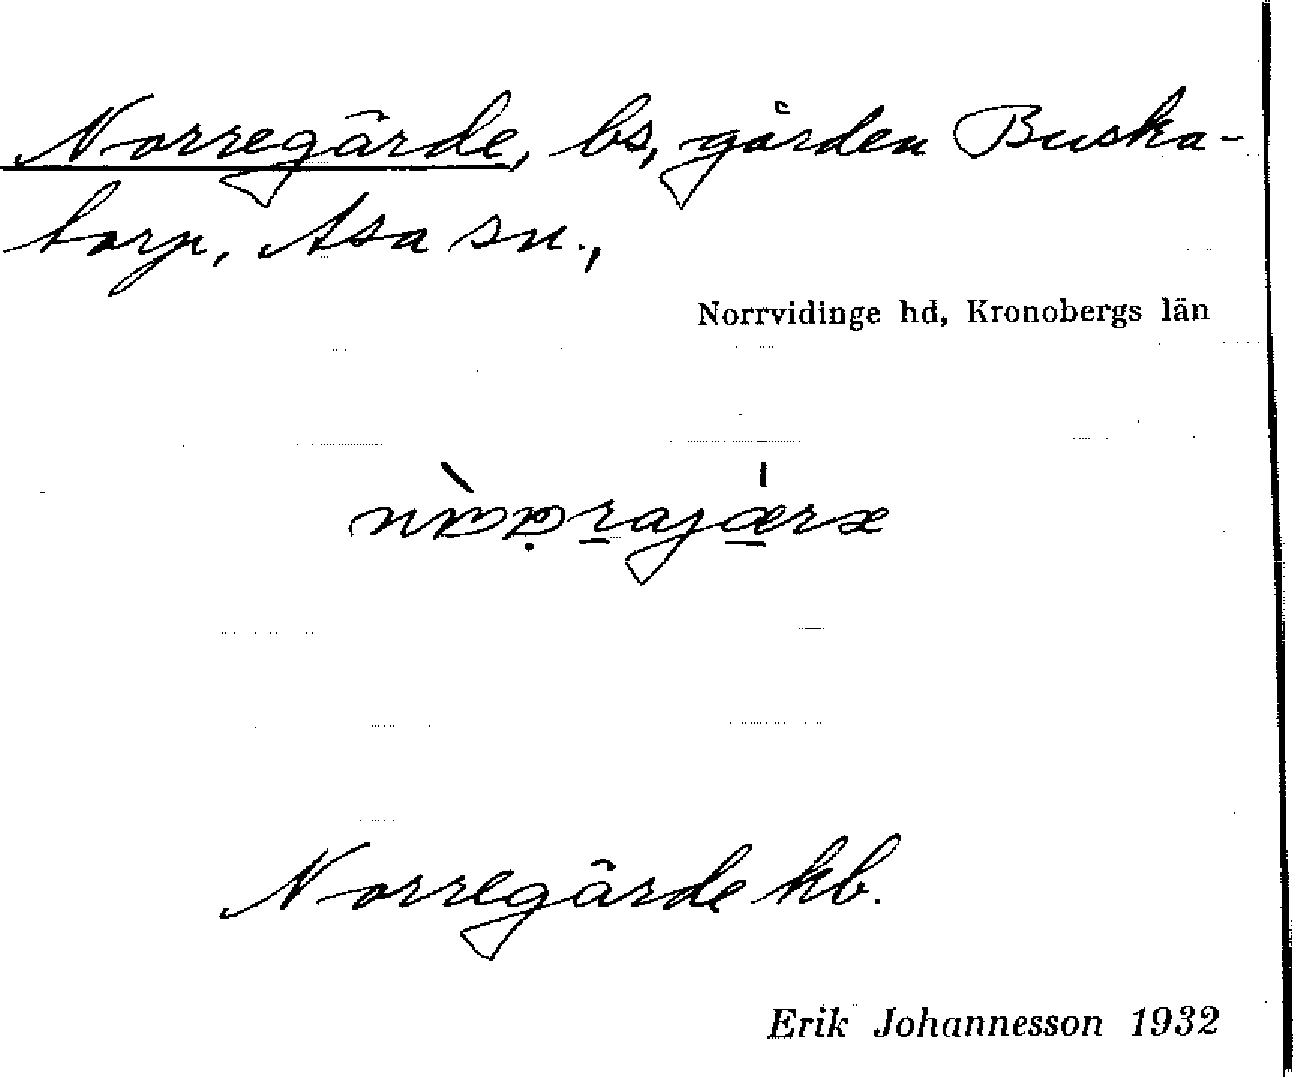 Norregärde, bs, gården Buska-
torp, Asa sn.,
Norrvidinge hd, Kronobergs län
Norregärde kb.
Erik Johannesson 1932